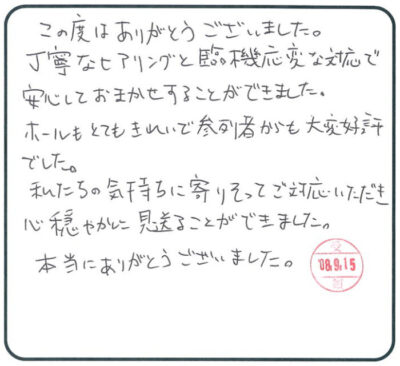 この度はありがとうございました。
丁寧なヒアリングと臨機応変な対応で
安心しておまかせすることができました。
ホールもとてもきれいで参列者からも大変好評
でした。
私たちの気持ちに寄りそってご対応いただき
心穏やかに見送ることができました。
本当にありがとうございました。
'08.9.15